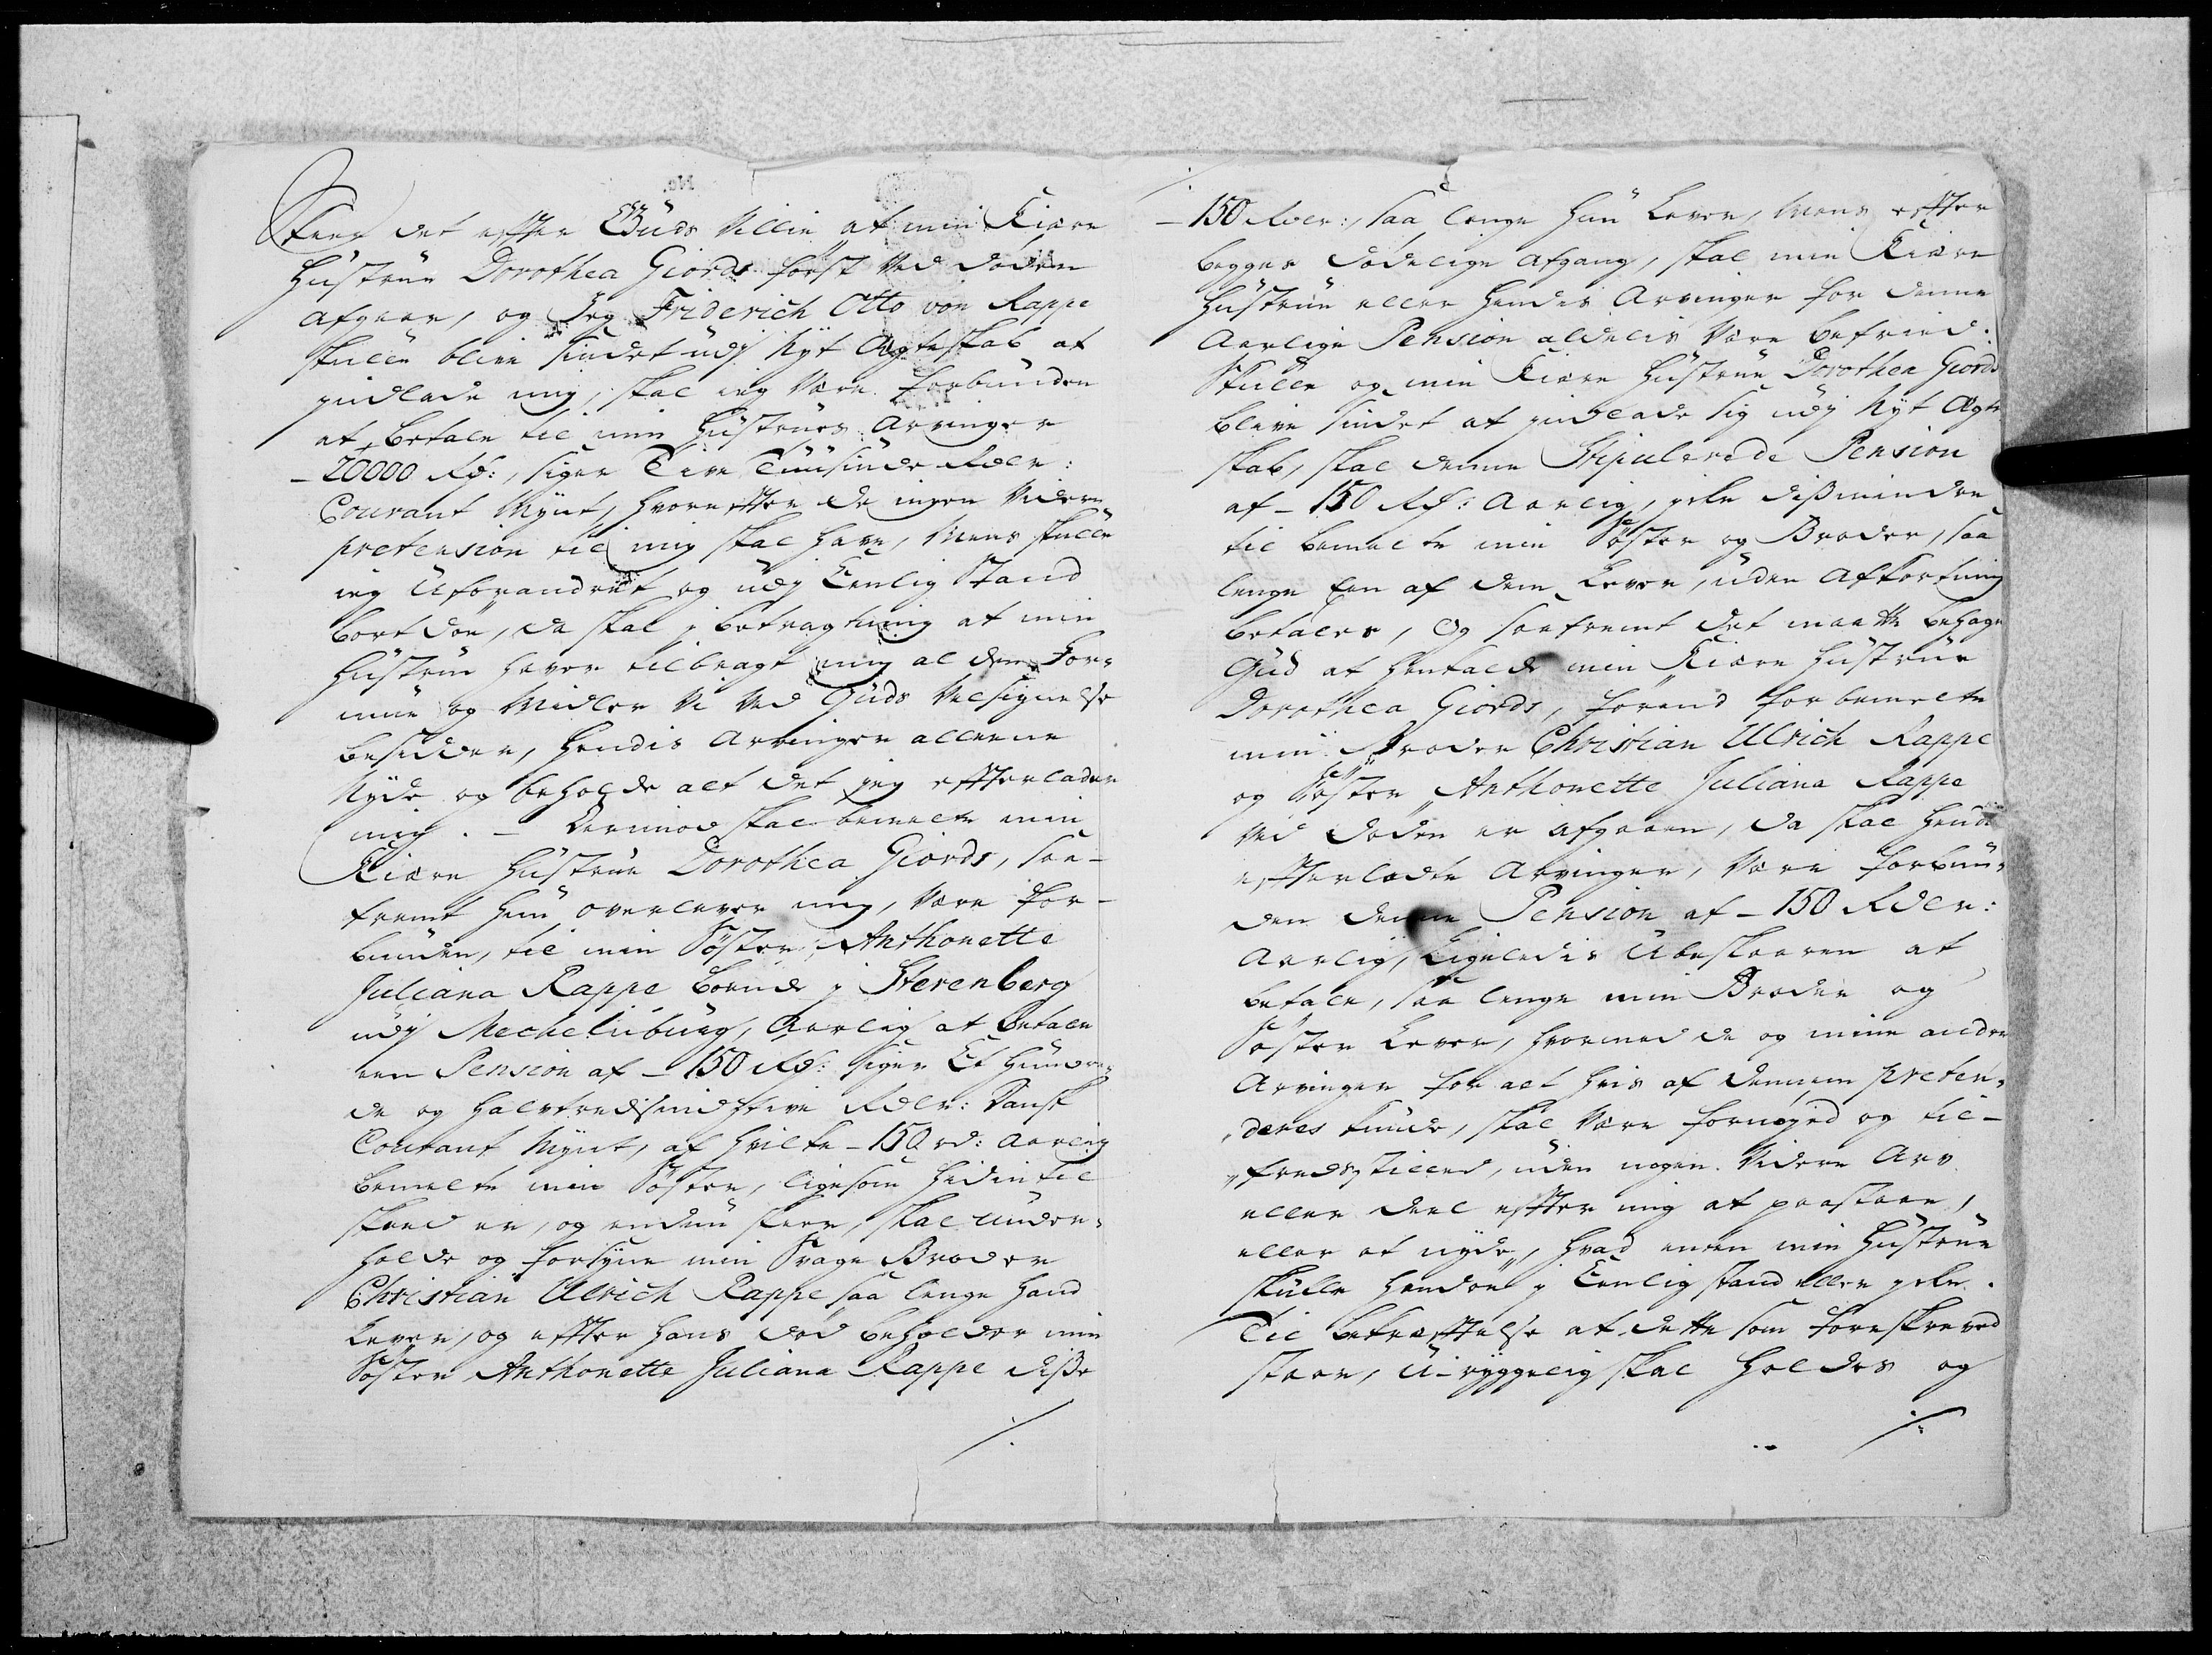 Skeer det efter Guds Villie at min Kiære
Hustrue Dorothea Giords først ved døden
afgaar, og Jeg Friderich Otto von Rappe
skulle blive sindet udj Nyt Ægteskab at
indlade mig, skal ieg være forbunden
at betale til min Hustrues Arvinger
– 20000 Rd:, siger Tive Tuusinde Rdlr:
Courant Mynt, hvorefter de ingen Videre
pretension til mig skal have, Mens skulle
ieg Uforandret og udj Eenlig Stand
bort døe, da skal j betragtning at min
Hustrue haver tilbragt mig al den For-
mue og Midler Vi Ved Guds Velsignelse
besidder, Hendis Arvinger alleene
Nyde og beholde alt det jeg effterlader
mig. – Derimod skal bemelte min
Kiære Hustrue Dorothea Giords, saa-
fremt hun overlever mig, være for-
bunden, til min Søster, Anthonette
Juliana Rappe boende j Sterenberg
udj Mechelnburg, Aarlig at betale
een Pension af – 150 Rd: siger Et Hundre-
de og Halvtredsindstive Rdlr: Dansk
Courant Mynt, af hvilke – 150 rd: Aarlig
bemelte min Søster, ligesom hidintil
skeed er, og endnu skeer, skal under-
holde og forsyne min Svage Broder
Christian Ulrich Rappe saa lenge hand
Lever, og effter hans død beholder min
Søster Anthonette Juliana Rappe disse
./.
– 150 Rdlr:, saa lenge hun Lever, Mens effter
begges dødelige afgang, skal min Kiære
Hustrue eller hendes Arvinger for denne
Aarlige Pension aldelis være befried.
Skulle og min Kiære Hustrue Dorothea Giords
blive sindet at indlade sig udj Nyt Ægte
skab, skal denne Stipulerede Pension
af – 150 Rd: Aarlig, icke dissminder
til bemelte min Søster og Broder, saa
lenge Een af dem Lever, uden Afkortning
betales, Og saafremt det maatte behage
Gud at henkalde min Kiære Hustrue
Dorothea Giords, førend forbemelte
min Broder Christian Ulrich Rappe
og Søster Anthonette Juliana Rappe
ved døden er afgaaen, da skal hendes
effterladte Arvinger, være forbun-
den denne Pension af – 150 Rdlr:
Aarlig, Ligeledis Ubeskaaren at
betale, saa lenge min Broder og
Søster Lever, hvormed de og mine andre
Arvinger for alt hvis af dennem preten-
deres kunde, skal være fornøjed og til-
fredsstilled, uden nogen Videre Arv
eller deel effter mig at paastaae,
eller at nyde, hvad enten min Hustrue
skulle hendøe j Eenlig stand eller icke.
Til bekræfftelse at dette som foreskreved
staar, U-ryggelig skal holdes og
./.